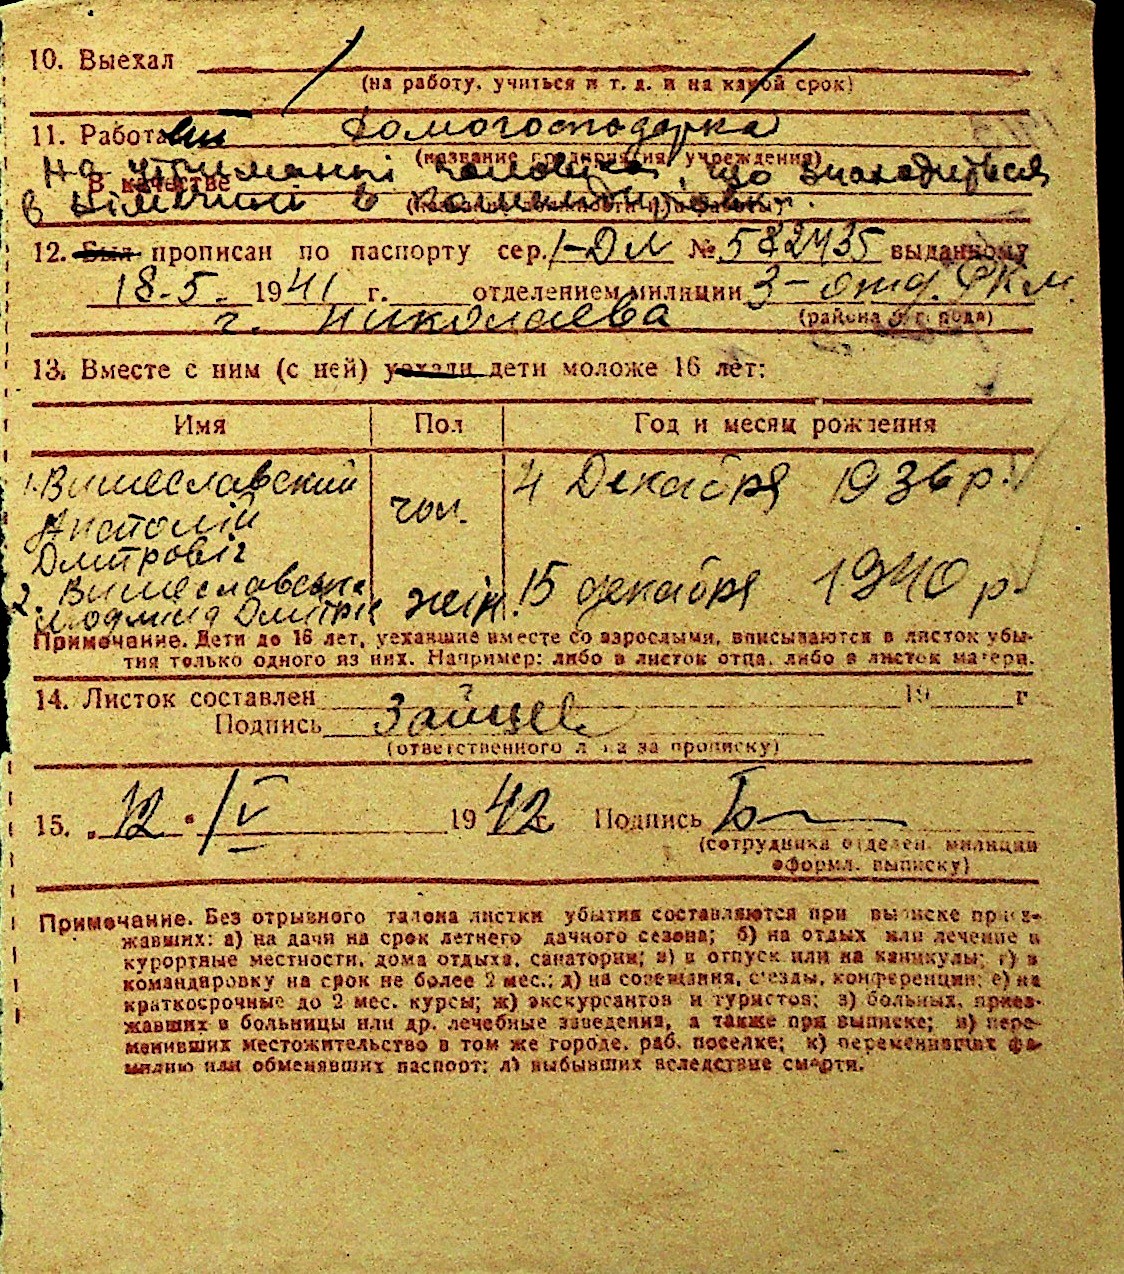 10. Выехал
(на работу, учиться и т. д. и на какой срок)
11. Работа домогосподарка
(название предприятия, учреждения)
На утриманні чоловіка, що знаходиться
в качестве
в Німеччині в
12. Был прописан по паспорту сер. I-ДЛ № 582435 выданному
18-5- 1941 г. отделением милиции 3-отд. РКМ.
г. Николаева (района и города)
13. Вместе с ним (с ней) уехали дети моложе 16 лет:
Имя Пол Год и месяц рождения
1. Вишеславский чол. 4 Декабря 1936 р.
Анатолій
Дмитровіч
2. Вишеславська жін. 15 декабря 1940 р.
Людмила Дмитрів
Примечание. Дети до 16 лет, уехавшие вместе со взрослыми, вписываются в листок убы-
тия только одного из них. Например: либо в листок отца, либо в листок матери.
14. Листок составлен 19 г
Подпись Зайцев
(ответственного лица за прописку)
15. „12" IV 1942 г. Подпись
(сотрудника отделен. милиции
оформл. выписку)
Примечание. Без отрывного талона листки убытия составляются при выписке приез-
жавших: а) на дачи на срок летнего дачного сезона; б) на отдых или лечение в
курортные местности, дома отдыха, санатории; в) в отпуск или на каникулы; г) в
командировку на срок не более 2 мес.; д) на совещания, съезды, конференции; е) на
краткосрочные до 2 мес. курсы; ж) экскурсантов и туристов; з) больных, приез-
жавших в больницы или др. лечебные заведения, а также при выписке; и) пере-
менивших местожительство в том же городе, раб. поселке; к) переменивших фа-
милию или обменявших паспорт; л) выбывших вследствие смерти.